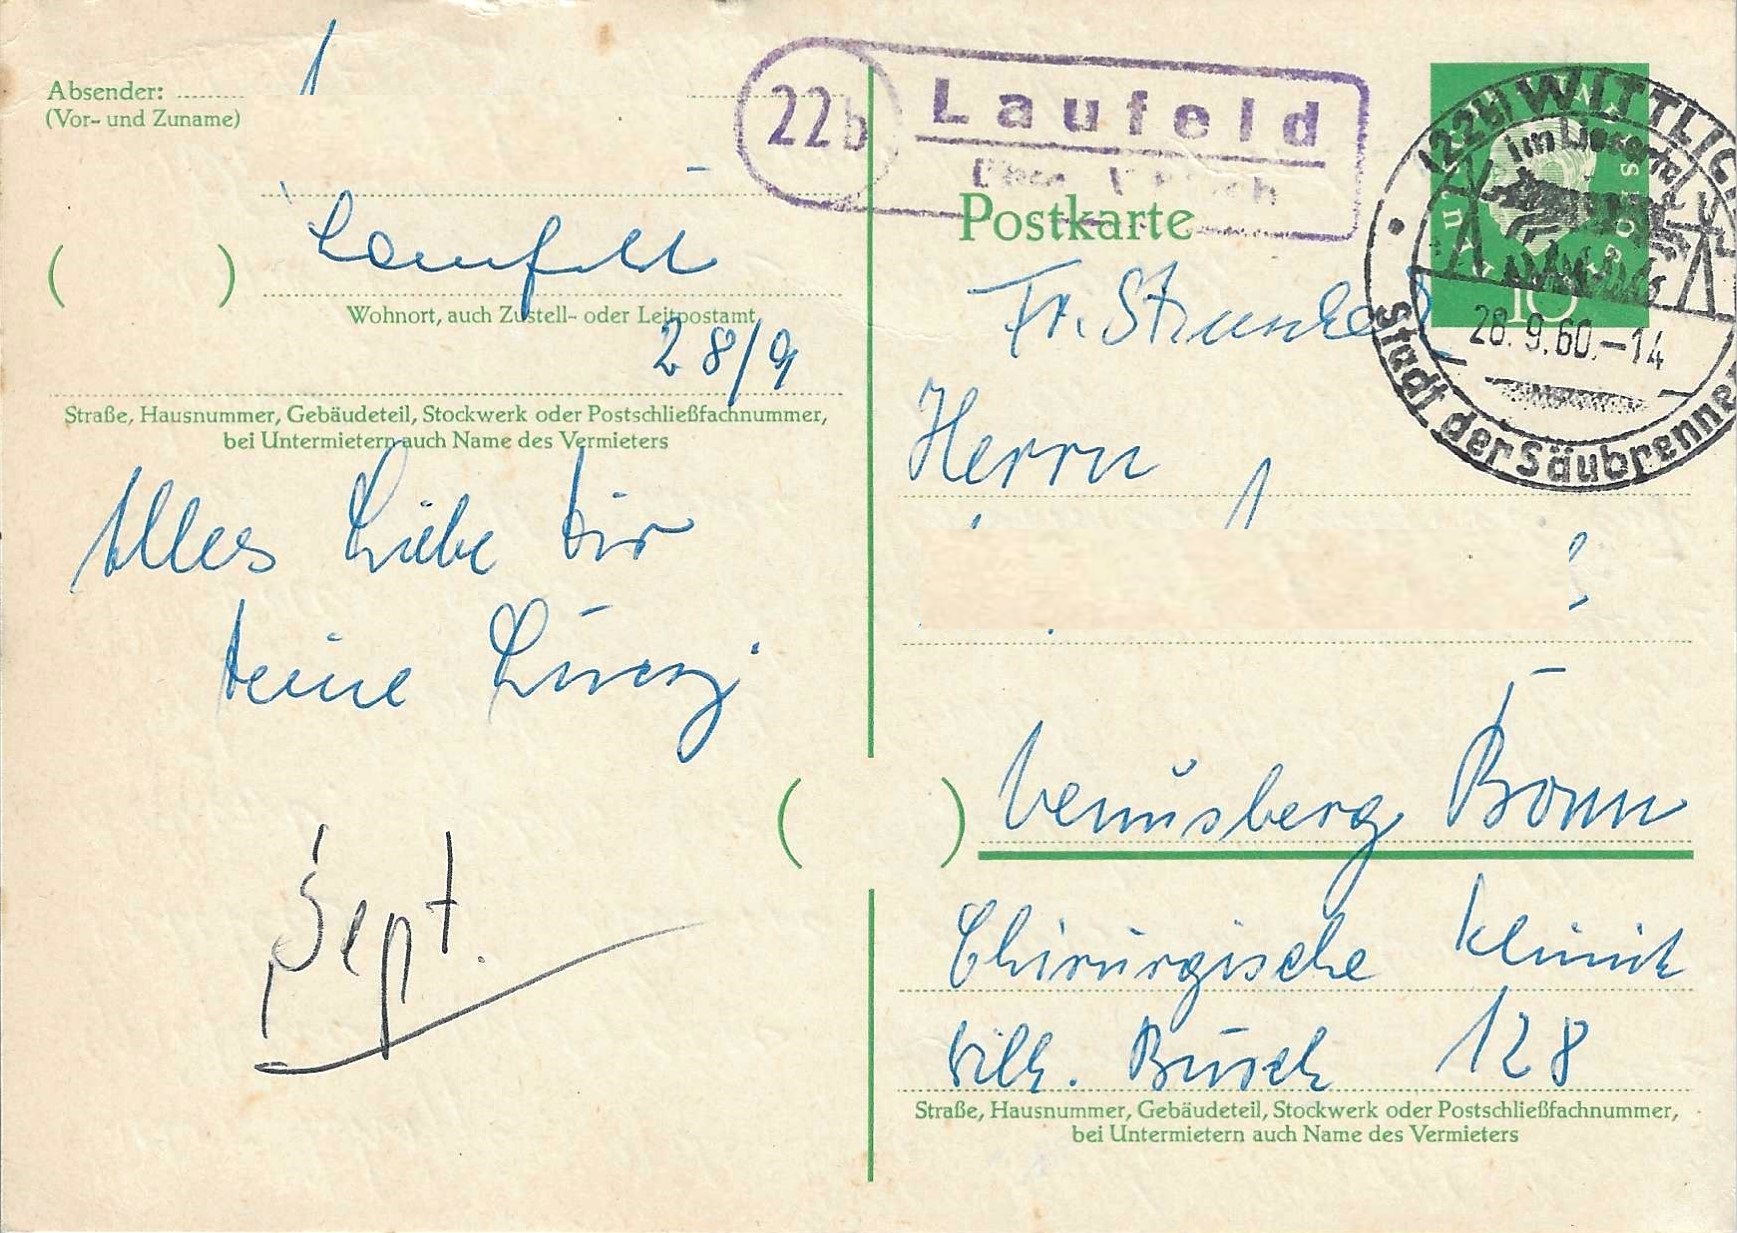 Absender:
(Vor- und Zuname)
Laufeld
( )
Wohnort, auch Zustell- oder Leitpostamt
28/9
Straße, Hausnummer, Gebäudeteil, Stockwerk oder Postschließfachnummer,
bei Untermietern auch Name des Vermieters
Alles Liebe Dir
Deine
Sept.
22b Laufeld
Postkarte
(22b) WITTLICH
im Liesertal
28.9.60.-14
Stadt der Säubrenner
10
Fr.
Herrn
( )
Venusberg Bonn
Chirurgische Klinik
Wilh. Busch 128
Straße, Hausnummer, Gebäudeteil, Stockwerk oder Postschließfachnummer,
bei Untermietern auch Name des Vermieters